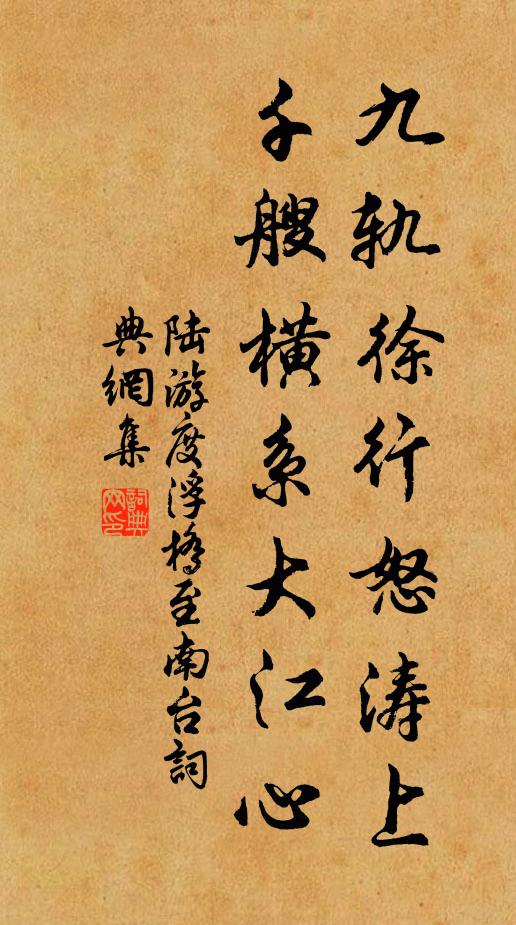 九轨徐行怒涛上
千艘横系大江心
陆游度浮橋至南台詞
典網集
詞典网印